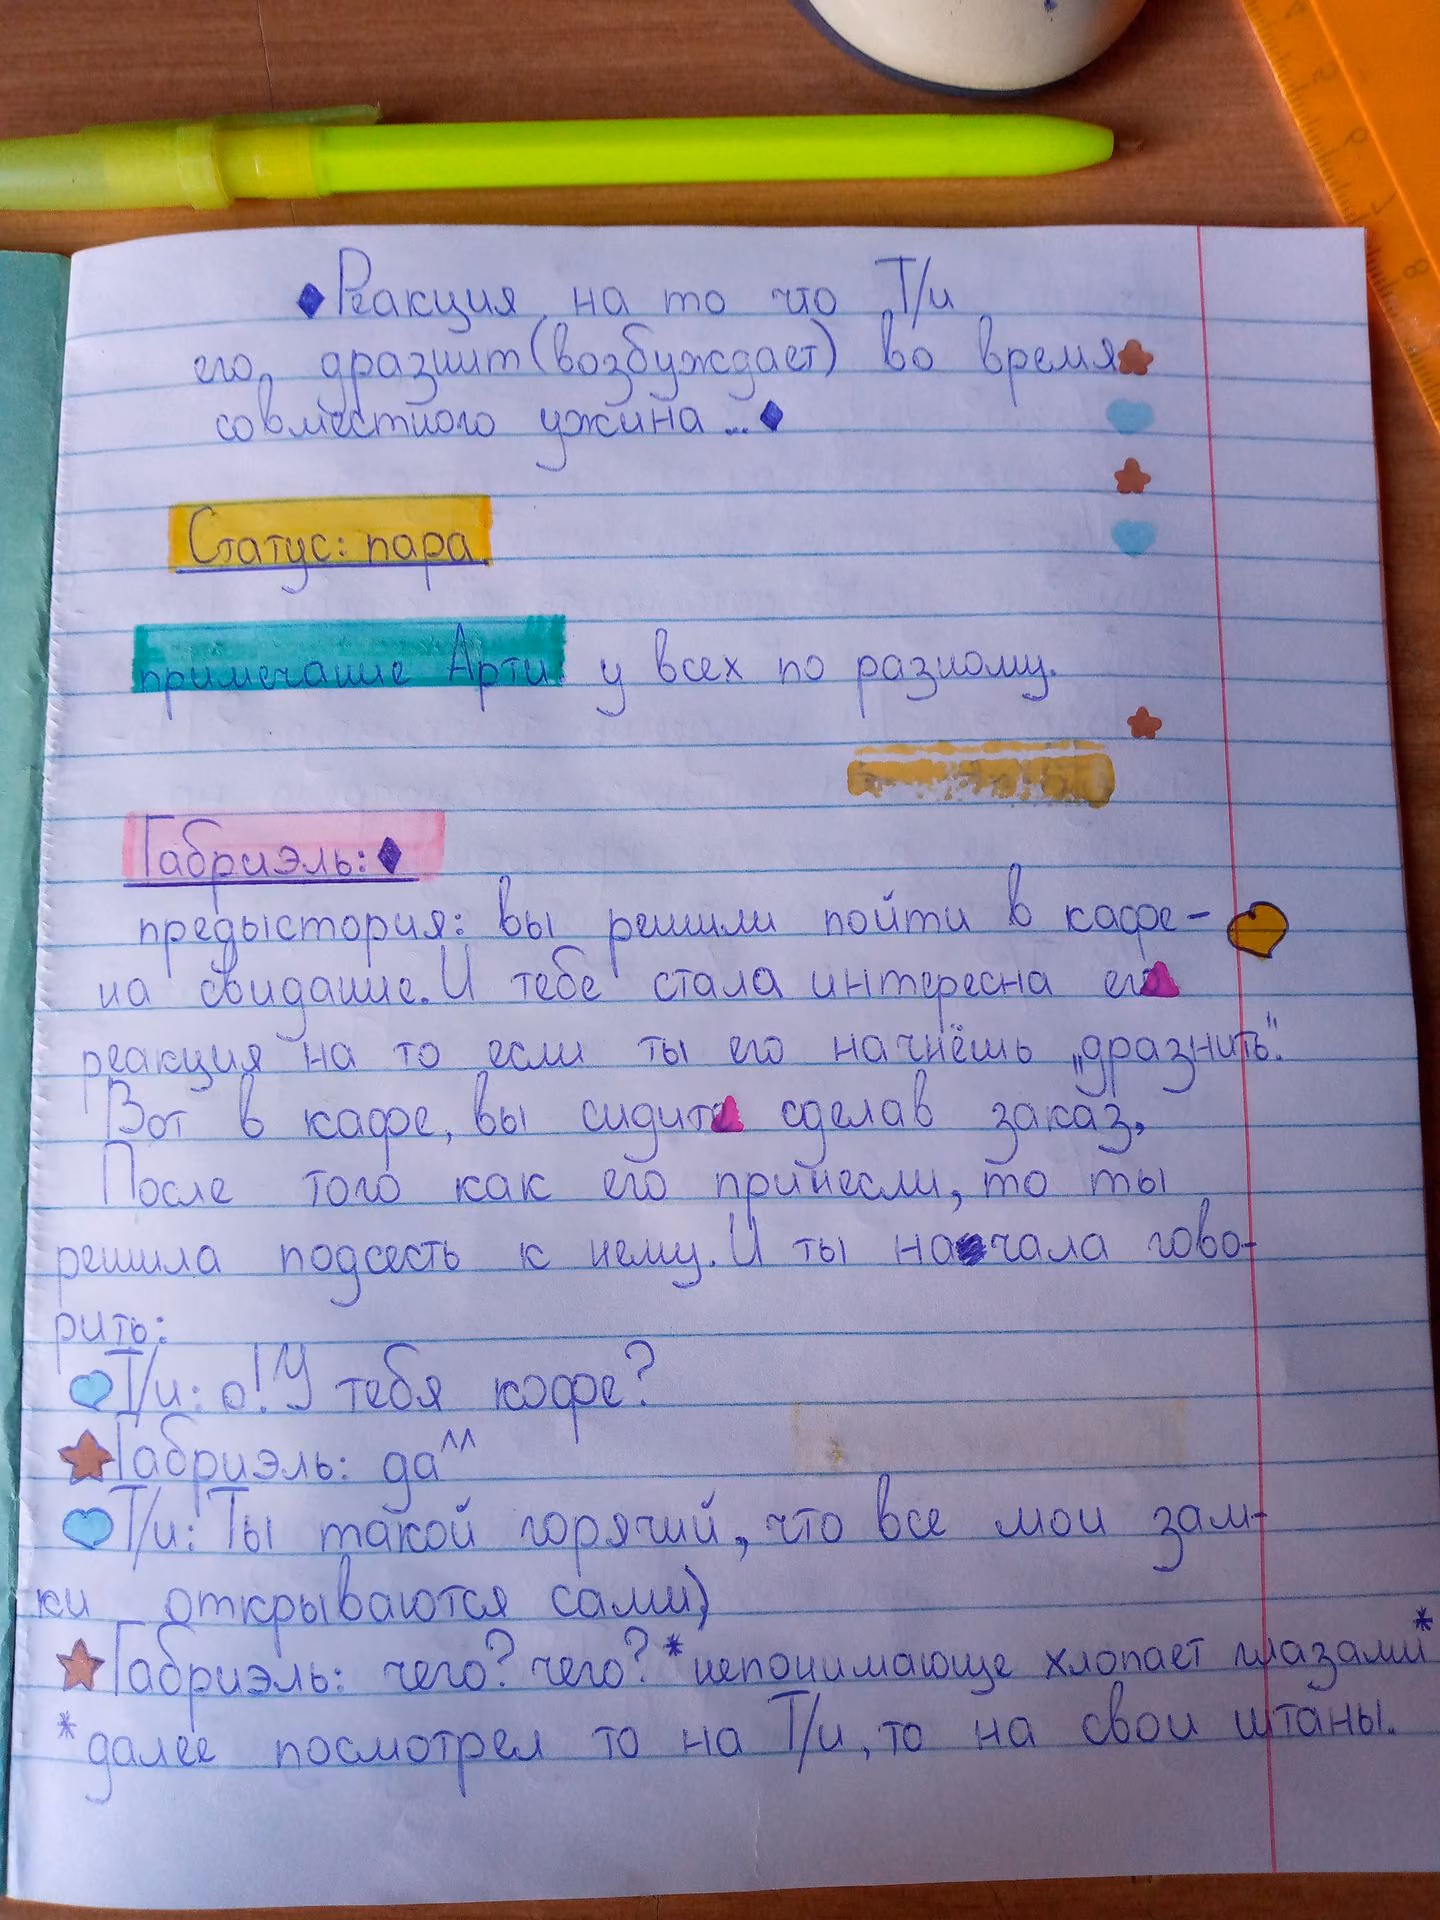 Реакция на то что Т/и
его дразнит (возбуждает) во время
совместного ужина...
Статус: пара
примечание Арти: у всех по разному.
Габриэль:
предыстория: вы решили пойти в кафе-
на свидание. И тебе стала интересна его
реакция на то если ты его начнёшь „дразнить".
Вот в кафе, вы сидите сделав заказ,
После того как его принесли, то ты
решила подсесть к нему. И ты начала гово-
рить:
Т/и: о! У тебя кофе?
Габриэль: да^^
Т/и: Ты такой горячий, что все мои зам-
ки открываются сами)
Габриэль: чего? чего? *непонимающе хлопает глазами*
*далее посмотрел то на Т/и, то на свои штаны.